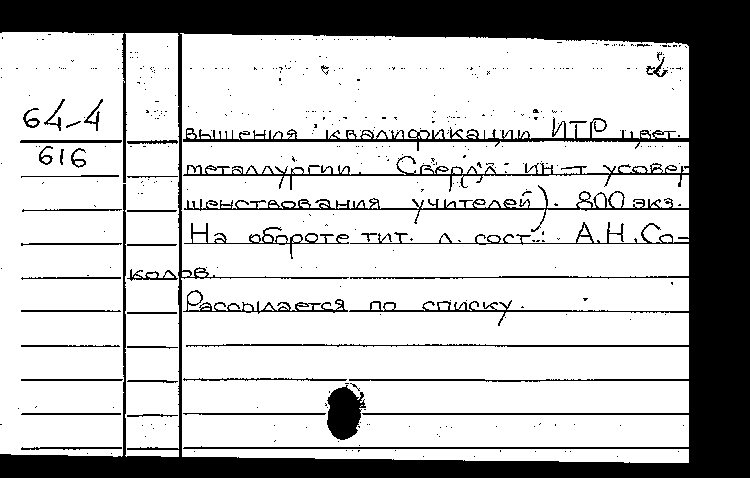 2
64-4
616
вышения квалификации ИТР цвет.
металлургии. Свердл. ин-т усовер
шенствования учителей). 800 экз.
На обороте тит. л. сост.: А.Н.Со-
колов.
Рассылается по списку.